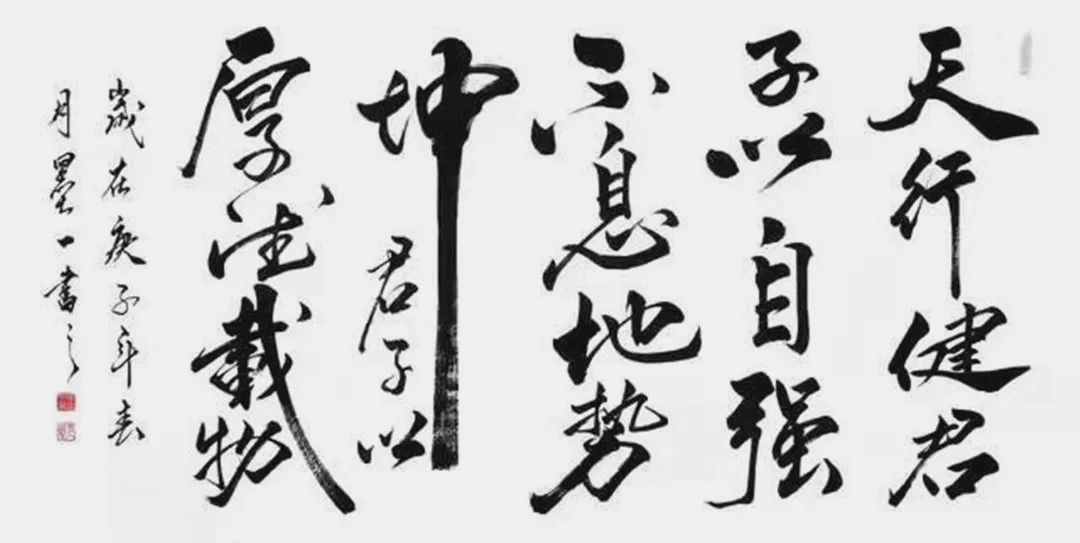 天行健君
子以自强
不息地势
坤君子以
厚德载物
岁在庚子年春
月墨一书之